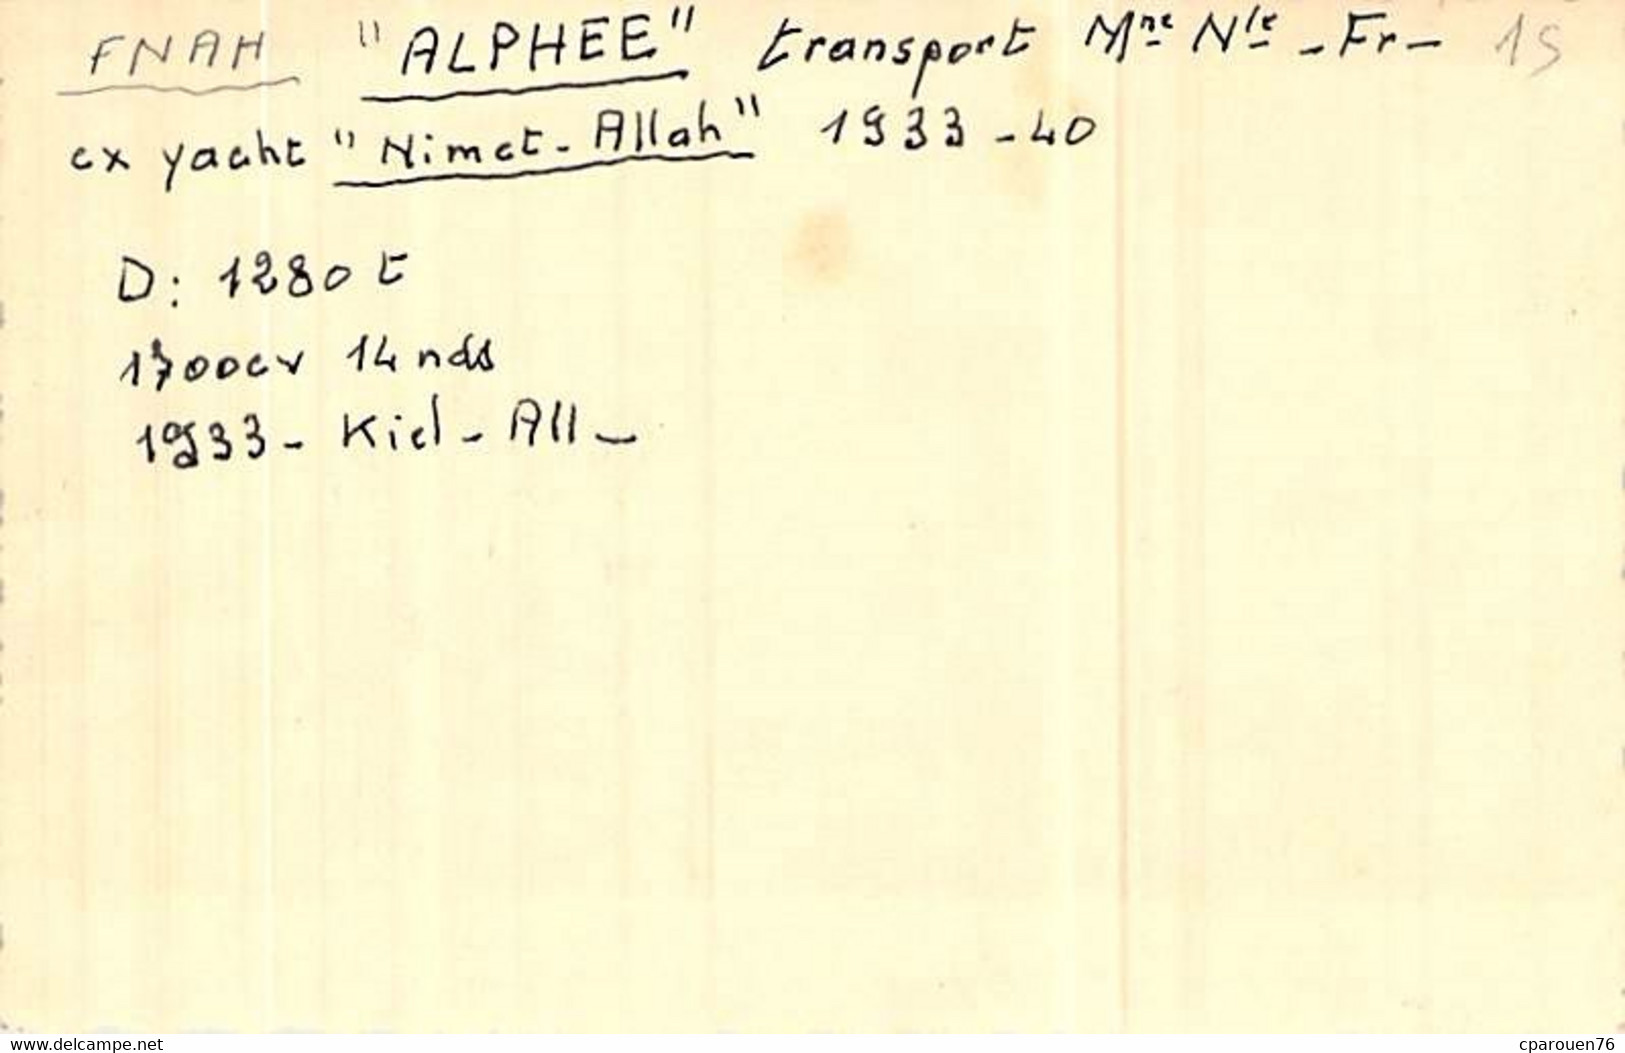 FNAH "ALPHEE" transport Mne Nle - Fr - 15
ex yacht "Nimet-Allah" 1933-40
D: 1280 t
1700cv 14 nds
1933 - Kiel - All -
www.delcampe.net cparouen76